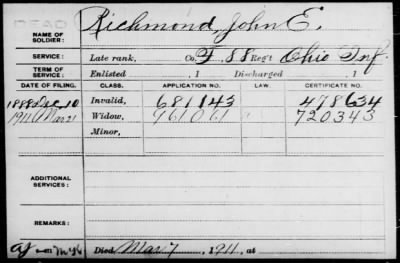 DEAD
NAME OF SOLDIER: Richmond, John E.
SERVICE: Late rank, Co. F, 88 Reg't Ohio Inf.
TERM OF SERVICE: Enlisted , 1 Discharged , 1
DATE OF FILING. CLASS. APPLICATION NO. LAW. CERTIFICATE NO.
1888 Dec 10 Invalid, 681143 478634
1911 Mar 21 Widow, 961061 720343
Minor,
ADDITIONAL SERVICES:
REMARKS:
Died Mar 7, 1911, at